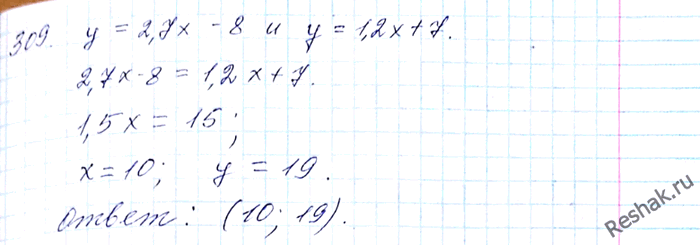 309. y = 2,7x - 8 и y = 1,2x + 7.
2,7x - 8 = 1,2x + 7.
1,5x = 15;
x = 10; y = 19.
Ответ: (10; 19).
Reshak.ru